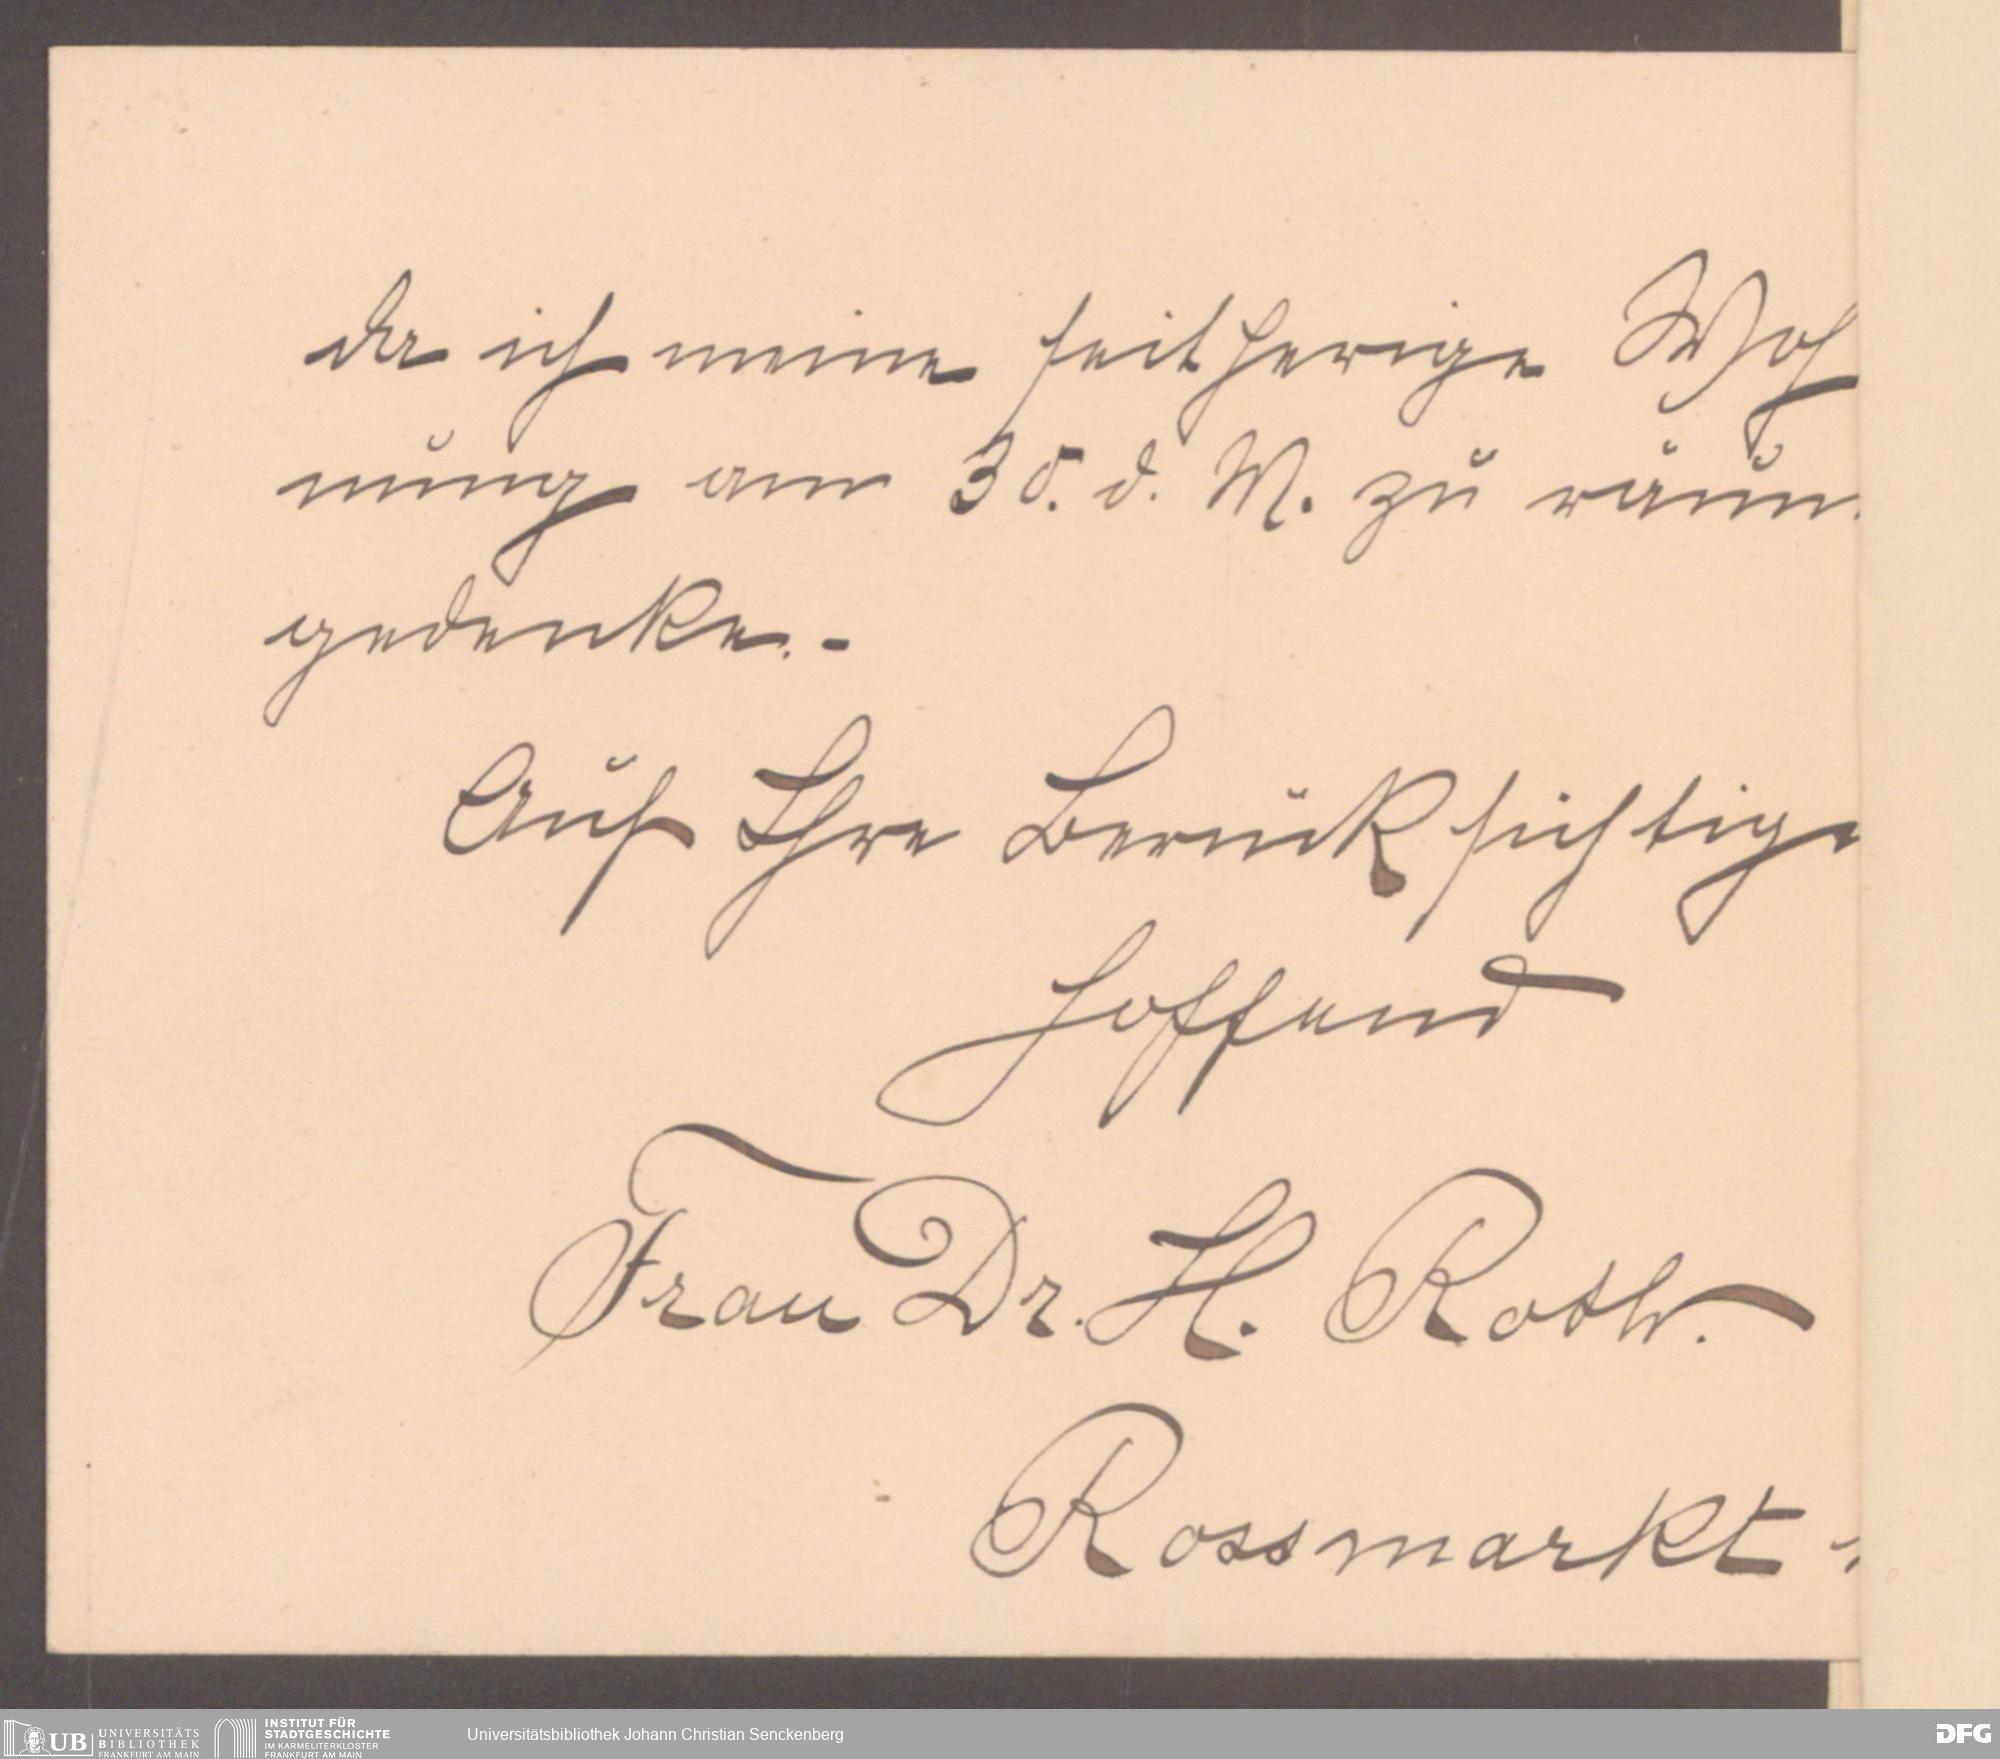 da ich meine seitherige Woh
nung am 30. d. M. zu räum
gedenke. -
Auf Ihre Berücksichtige
hoffend
Frau Dr. H. Roth.
Rossmarkt
UB UNIVERSITÄTS
BIBLIOTHEK
FRANKFURT AM MAIN
INSTITUT FÜR
STADTGESCHICHTE
IM KARMELITERKLOSTER
FRANKFURT AM MAIN
Universitätsbibliothek Johann Christian Senckenberg
DFG